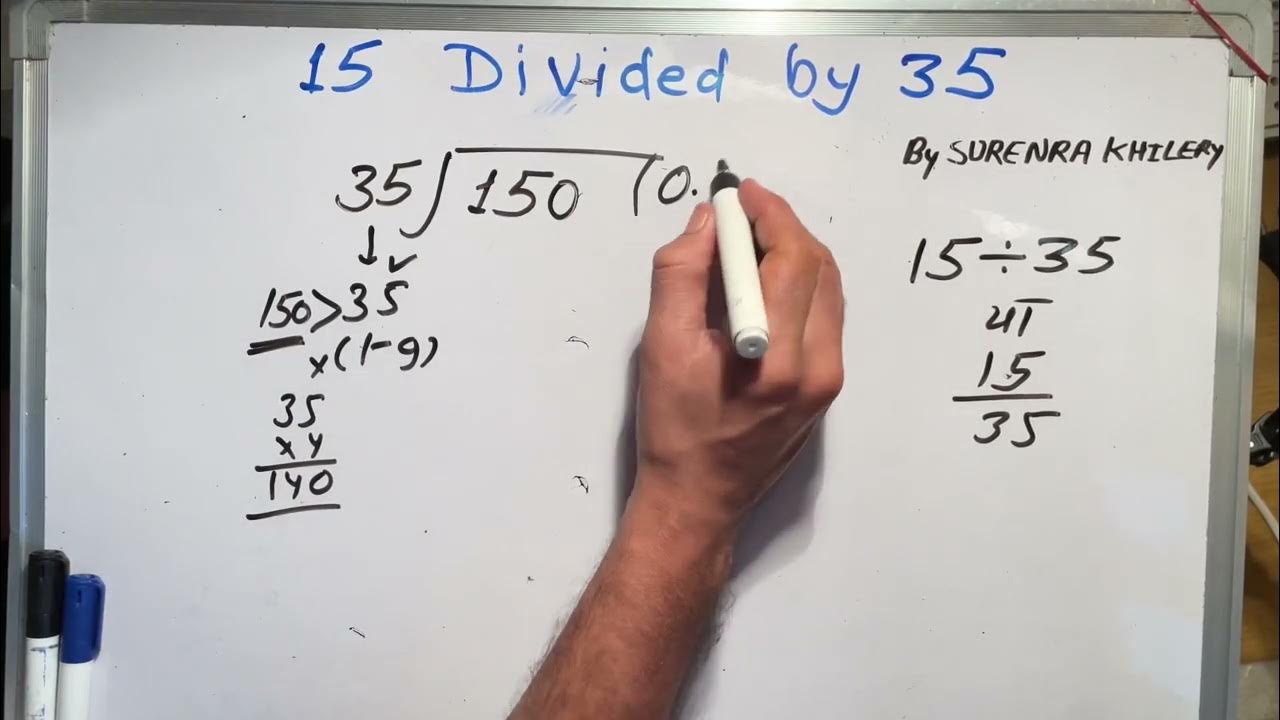 15 Divided by 35
By SURENRA KHILERY
35)150(0.
150>35
×(1-9)
35
×4
140
15÷35
15
35